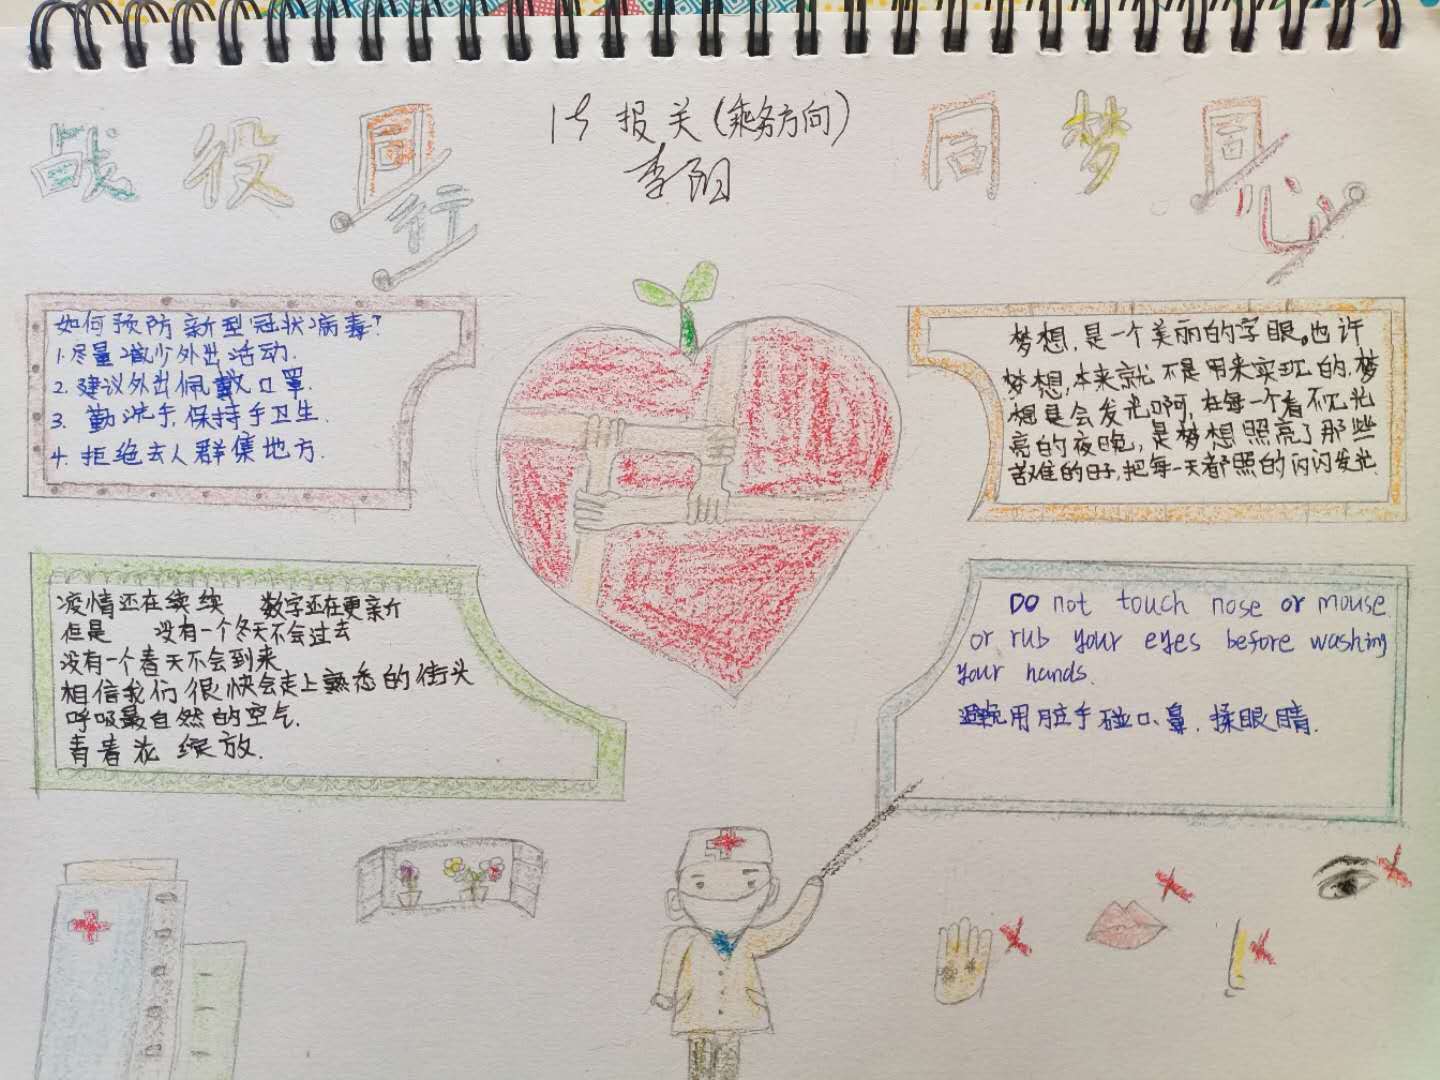 战役同行
15报关(乘务方向)
李阳
同梦同心
如何预防新型冠状病毒?
1.尽量减少外出活动.
2.建议外出佩戴口罩.
3.勤洗手,保持手卫生.
4.拒绝去人群集地方.
梦想,是一个美丽的字眼。也许
梦想,本来就不是用来实现的.梦
想是会发光啊,在每一个看不见光
亮的夜晚,是梦想照亮了那些
苦难的日子,把每一天都照的闪闪发光
疫情还在续续 数字还在更新
但是 没有一个冬天不会过去
没有一个春天不会到来
相信我们很快会走上熟悉的街头
呼吸最自然的空气.
青春花绽放.
DO not touch nose or mouse
or rub your eyes before washing
your hands.
避免用脏手碰口、鼻.揉眼睛.